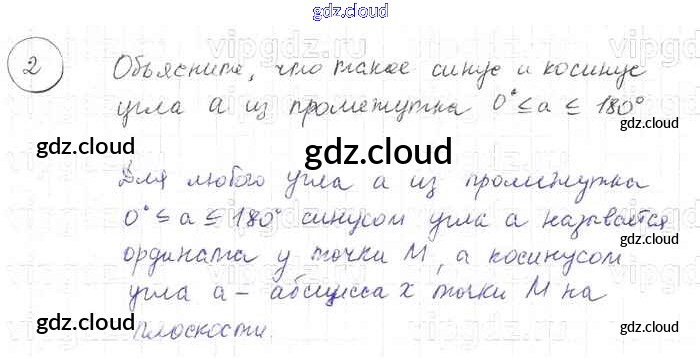 gdz.cloud
2
Объясните, что такое синус и косинус
угла а из промежутка 0° ≤ а ≤ 180°
gdz.cloud
gdz.cloud
gdz.cloud
Для любого угла а из промежутка
0° ≤ а ≤ 180° синусом угла а называется
gdz.cloud
ордината у точки М, а косинусом
угла а – абсцисса х точки М на
gdz.cloud
gdz.cloud
плоскости.